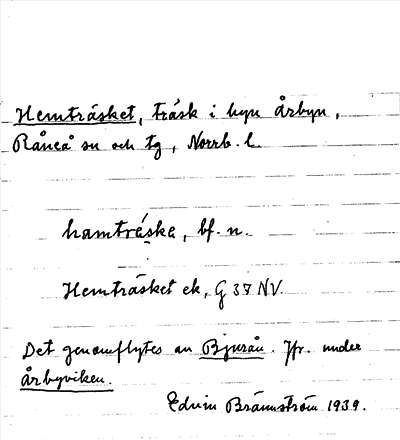 Hemträsket, träsk i byn Årbyn,
Råneå sn och tg, Norrb. l.
hamtrę́ska, bf. n.
Hemträsket ek, G 37 NV.
Det genomflytes av Bjurån. Jfr. under
Årbyviken.
Edvin Brännström 1939.